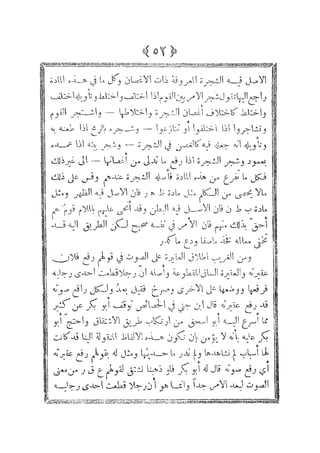 ﴿ ٥٢ ﴾
الاصل فيه الشجرة المعروفة ذات الاغصان وكل ما في هذه المادة
راجع اليها تقول شجر الامر بين القوم اذا اختلف وتأويله اختلف
واختلط كاختلاف أغصان الشجرة واختلاطها — واشتجر القوم
وتشاجروا اذا اختلفوا أو تنازعوا — وشجره بالرمح اذا طعنه به
وتأويله انه جعله فيه كالغصن في الشجرة — وشجر بيته اذا عمده
بعمود وشجر الشجرة اذا رفع ما تدلى من أغصانها — الى غير ذلك
فكل ما تفرع من هذه المادة فأصله الشجرة عندهم وقس على ذلك
مالا يحصى من الكلم مثل مادة ظ ه ر فان الاصل فيه الظهر ومثل
مادة ب ط ن فان الاصل فيه البطن وقد أنحى عليهم باللام قوم هم
أحق بذلك منهم فان الأمر في نفسه صحيح لكن الطريق اليه قد
تخفى معالمه فخذ ماصفا ودع ما كدر
ومن الغريب اطلاق العقيرة على الصوت في قولهم رفع فلان
عقيرته والعقيرة الساق المقطوعة وأصله ان رجلا قطعت احدى رجليه
فرفعها ووضعها على الاخرى وصرخ فقيل بعد لكل رافع صوته
قد رفع عقيرته قال ابن جني في الخصائص توقف أبو بكر عن كثير
مما أسرع اليه أبو اسحق من ارتكاب طريق الاشتقاق واحتج أبو
بكر عليه بأنه لا يؤمن بان تكون هذه الالفاظ المنقولة الينا قد كانت
لها أسباب لم نشاهدها ولم ندر ما حديثها ومثل له بقولهم رفع عقيرته
أي رفع صوته قال له أبو بكر فلو ذهبنا نشتق لقولهم ع ق ر من معنى
الصوت لبعد الامر جداً وانما هو أن رجلا قطعت احدى رجليه